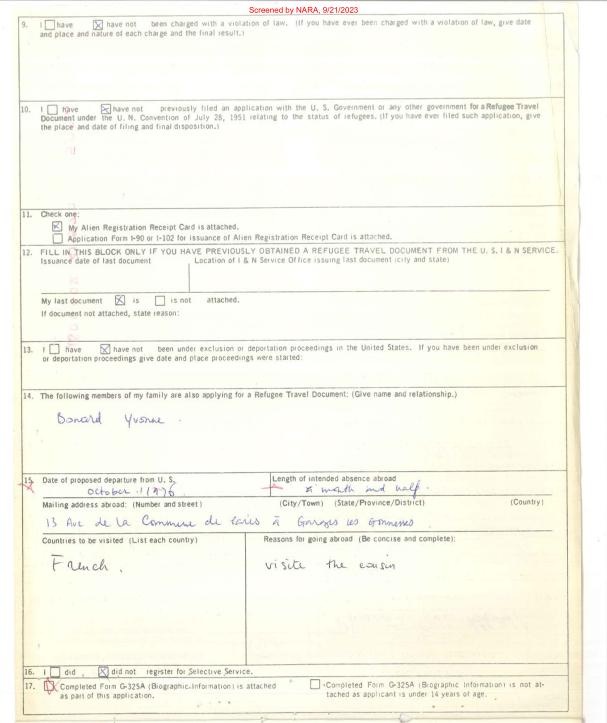 Screened by NARA, 9/21/2023
9. I ☐ have ☒ have not been charged with a violation of law. (If you have ever been charged with a violation of law, give date
and place and nature of each charge and the final result.)
10. I ☐ have ☒ have not previously filed an application with the U. S. Government or any other government for a Refugee Travel
Document under the U. N. Convention of July 28, 1951 relating to the status of refugees. (If you have ever filed such application, give
the place and date of filing and final disposition.)
11. Check one:
☒ My Alien Registration Receipt Card is attached.
☐ Application Form I-90 or I-102 for issuance of Alien Registration Receipt Card is attached.
12. FILL IN THIS BLOCK ONLY IF YOU HAVE PREVIOUSLY OBTAINED A REFUGEE TRAVEL DOCUMENT FROM THE U. S. I & N SERVICE.
Issuance date of last document Location of I & N Service Office issuing last document (city and state)
My last document ☒ is ☐ is not attached.
If document not attached, state reason:
13. I ☐ have ☒ have not been under exclusion or deportation proceedings in the United States. If you have been under exclusion
or deportation proceedings give date and place proceedings were started:
14. The following members of my family are also applying for a Refugee Travel Document: (Give name and relationship.)
Bonard Yvonne
15. Date of proposed departure from U. S. Length of intended absence abroad
October 1 1976 month and half.
Mailing address abroad: (Number and street) (City/Town) (State/Province/District) (Country)
13 Ave de la Commune de Paris à Garges les Gonnesses
Countries to be visited (List each country) Reasons for going abroad (Be concise and complete):
French. visite the cousin
16. I ☐ did ☒ did not register for Selective Service.
17. ☐ Completed Form G-325A (Biographic Information) is attached ☐ Completed Form G-325A (Biographic Information) is not at-
as part of this application. tached as applicant is under 14 years of age.